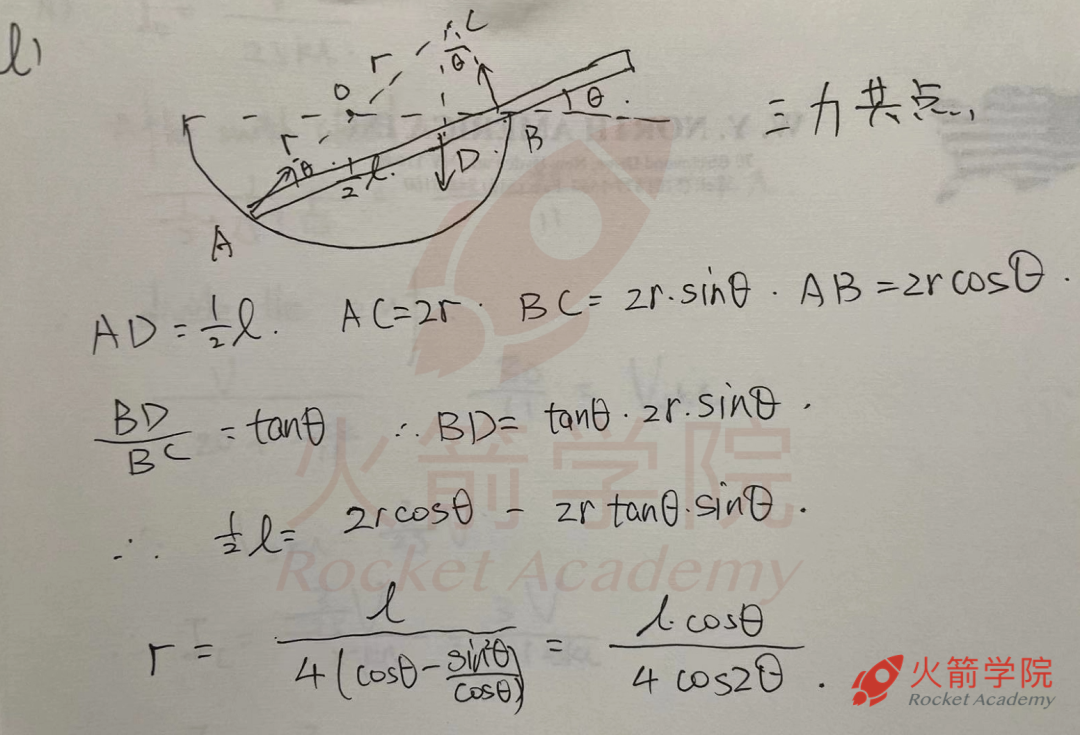 (1)
C
r θ
O
r B θ 三力共点,
θ ½l. D
A
AD = ½l. AC=2r. BC= 2r·sinθ. AB=2rcosθ.
BD/BC = tanθ ∴ BD= tanθ·2r·sinθ.
∴ ½l= 2rcosθ - 2r tanθ·sinθ.
r = l/4(cosθ-sin²θ/cosθ) = l·cosθ/4cos2θ.
火箭学院
Rocket Academy
火箭学院
Rocket Academy